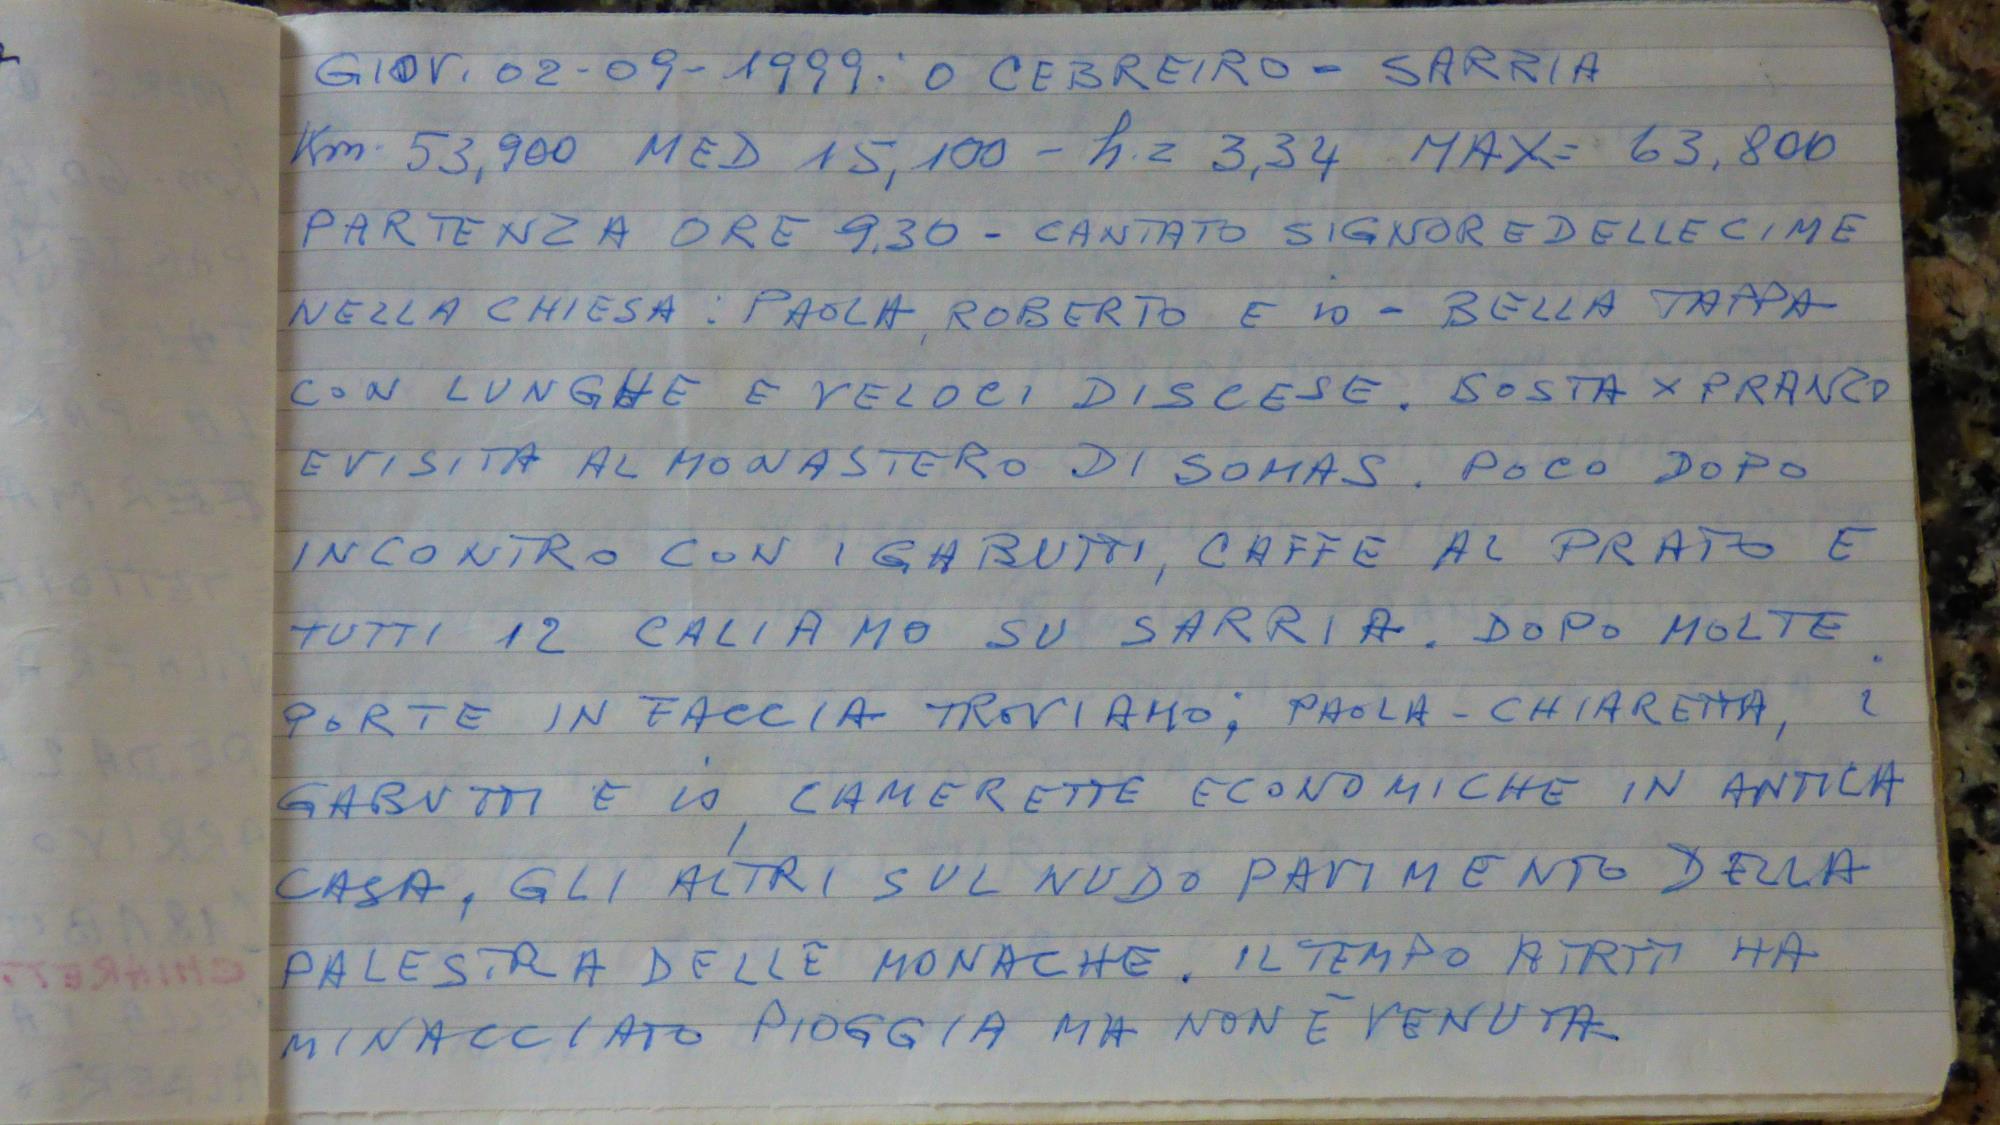 GIOV. 02-09-1999: O CEBREIRO - SARRIA
Km. 53,900 MED 15,100 - h.= 3,34 MAX= 63,800
PARTENZA ORE 9.30 - CANTATO SIGNORE DELLE CIME
NELLA CHIESA: PAOLA, ROBERTO E io - BELLA TAPPA
CON LUNGHE E VELOCI DISCESE. SOSTA x PRANZO
E VISITA AL MONASTERO DI SOMAS. POCO DOPO
INCONTRO CON I GABUTTI, CAFFE AL PRATO E
TUTTI 12 CALIAMO SU SARRIA. DOPO MOLTE
PORTE IN FACCIA TROVIAMO; PAOLA - CHIARETTA, i
GABUTTI E io, CAMERETTE ECONOMICHE IN ANTICA
CASA, GLI ALTRI SUL NUDO PAVIMENTO DELLA
PALESTRA DELLE MONACHE. IL TEMPO A TRTTI HA
MINACCIATO PIOGGIA MA NON È VENUTA